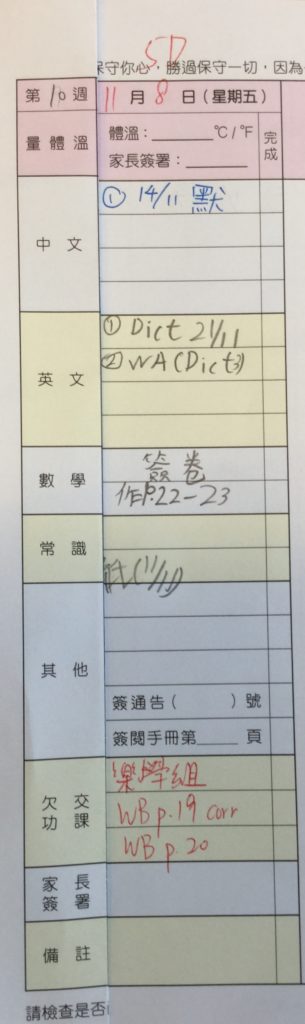 5D
保守你心，勝過保守一切，因為
第10週 11月8日(星期五)
量體溫 體溫：________°C/°F 完成
家長簽署：________
中文 ① 14/11 默
英文 ① Dict 21/11
② WA(Dict3)
數學 簽卷
作P.22-23
常識
(11/11)
其他
簽通告( )號
簽閱手冊第____頁
欠交功課 樂學組
WB p.19 corr
WB p.20
家長簽署
備註
請檢查是否